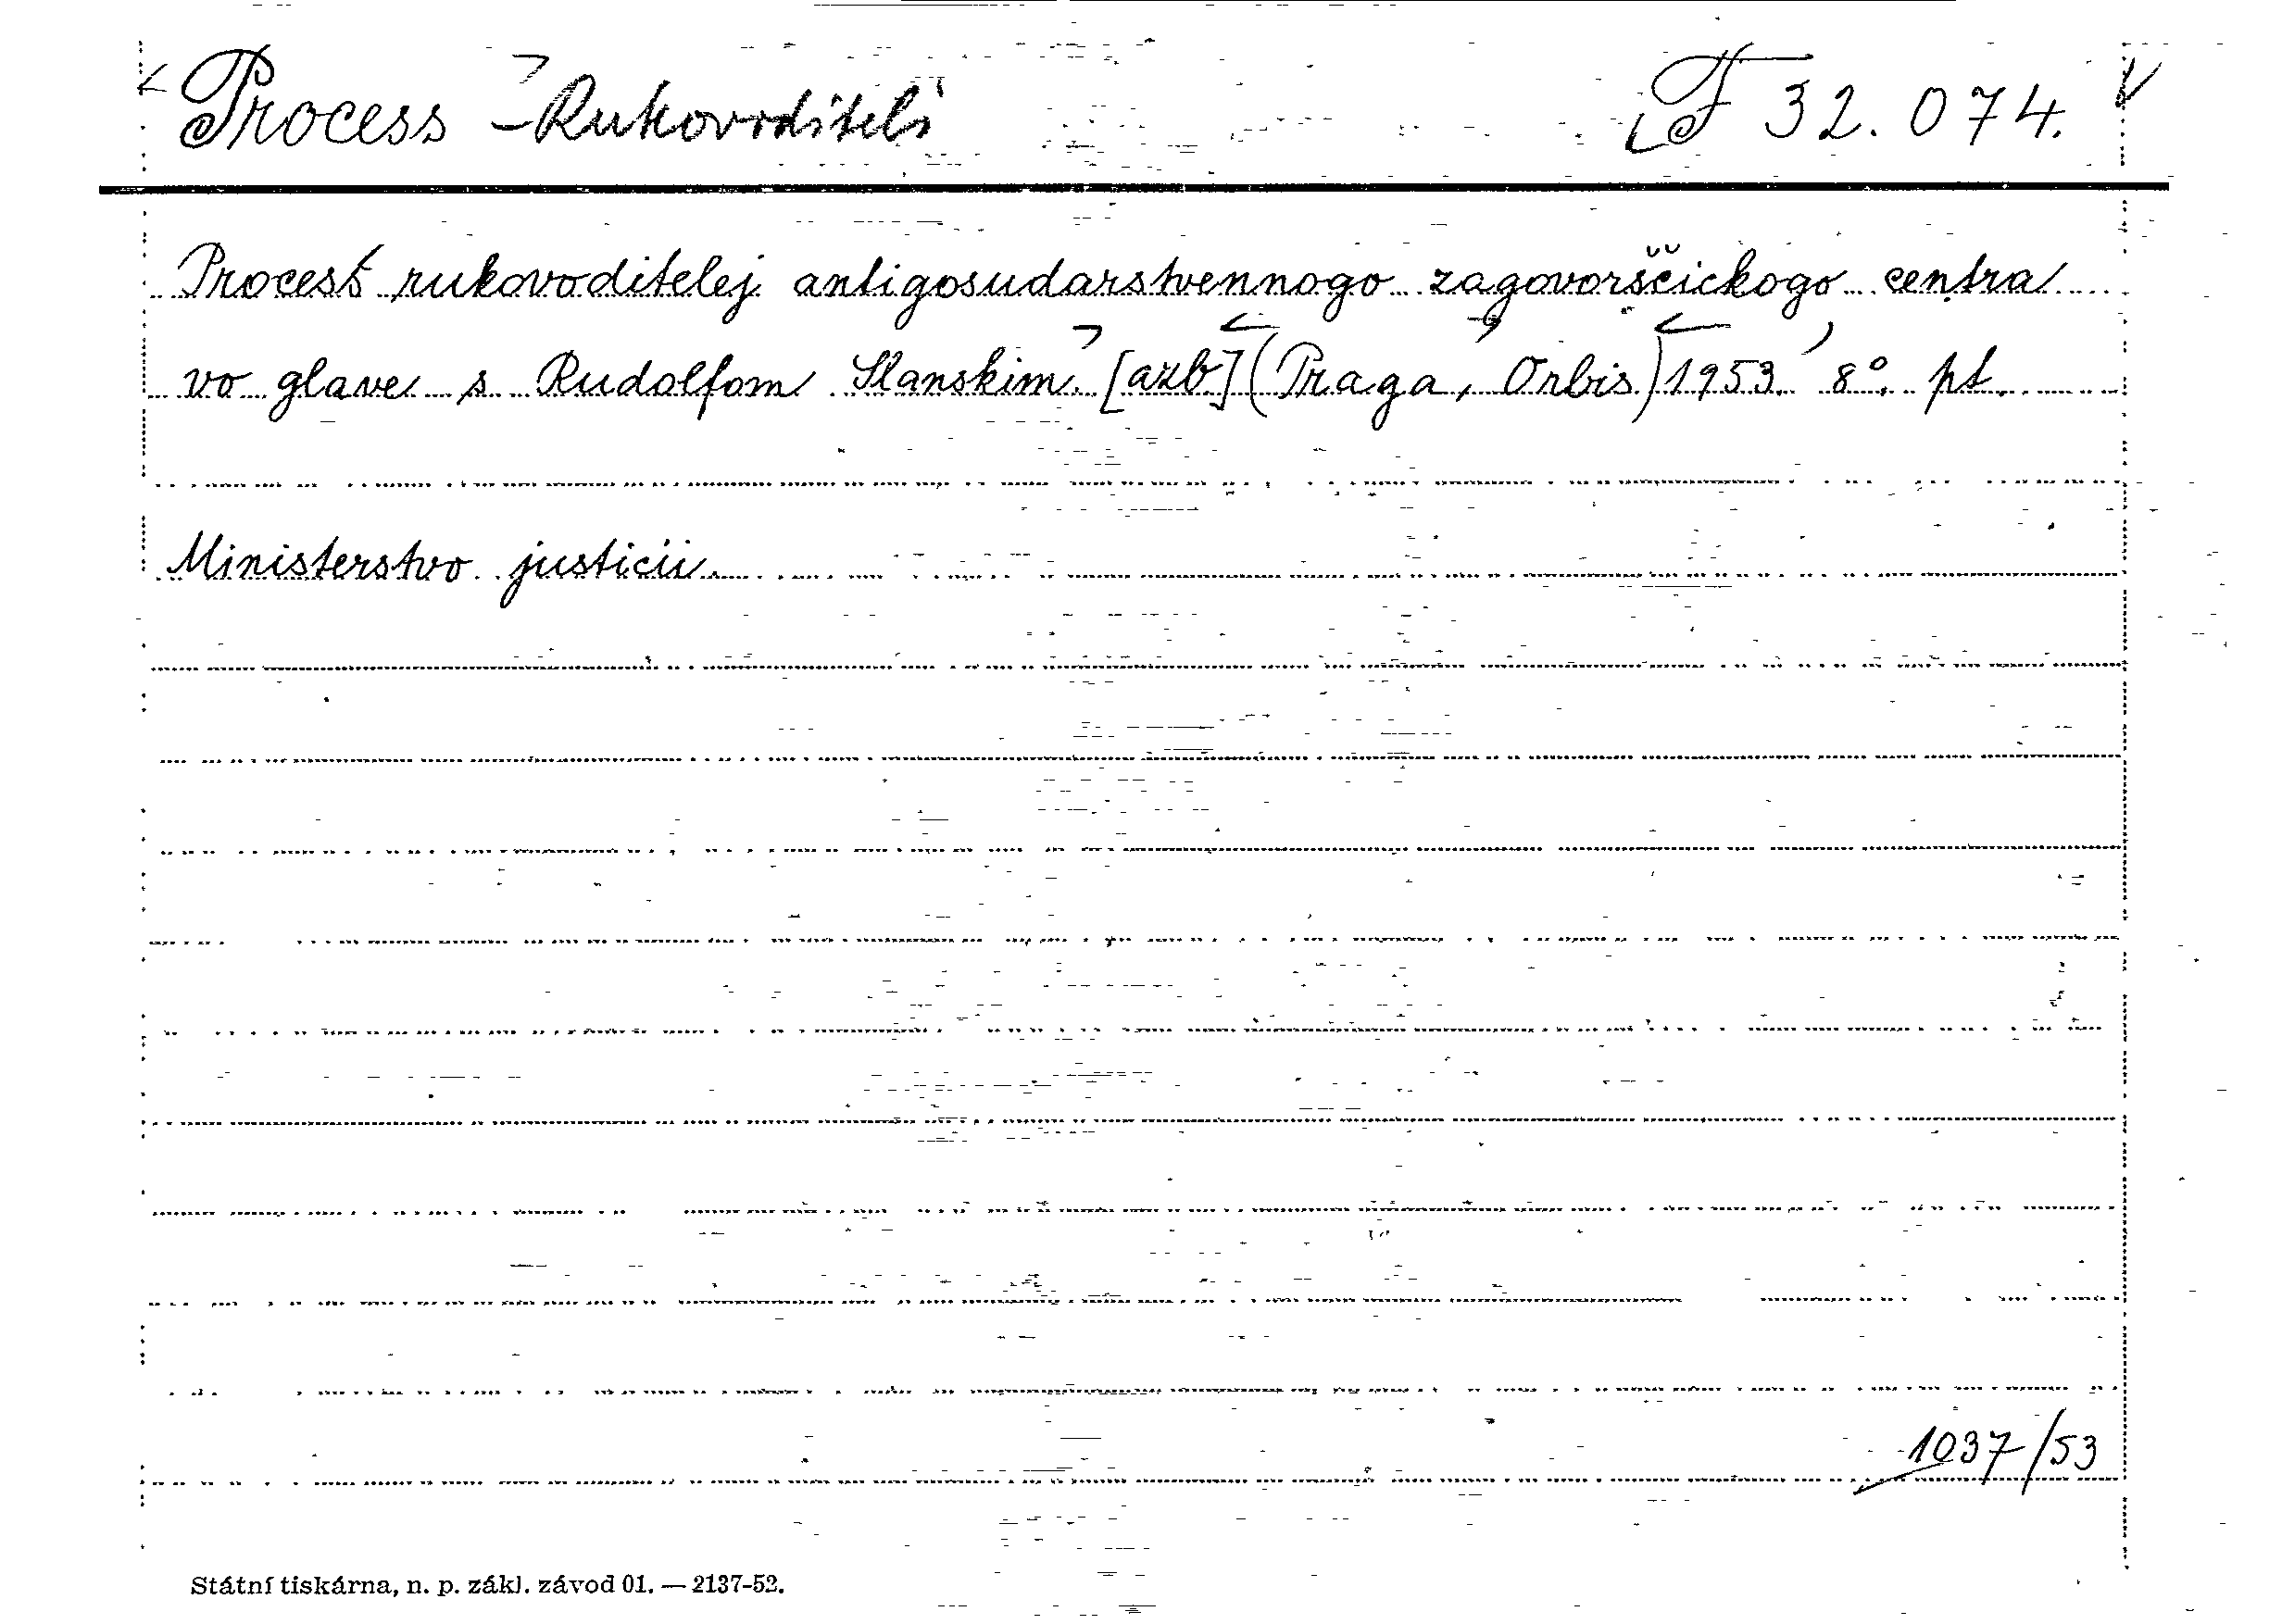 Process - Rukovoditeli F 32.074.
Process rukovoditelej antigosudarstvennogo zagovorščickogo centra
vo glave s Rudolfom Slanskim. [azb.] (Praga, Orbis) 1953. 8°. pt.
Ministerstvo justicii.
1037/53
Státní tiskárna, n. p. zákl. závod 01. — 2137-52.